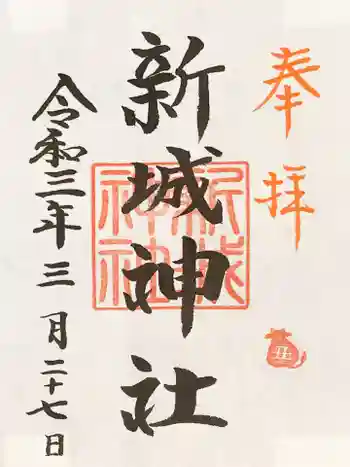 奉拝
新城神社
新城神社
令和三年三月二十七日
丑